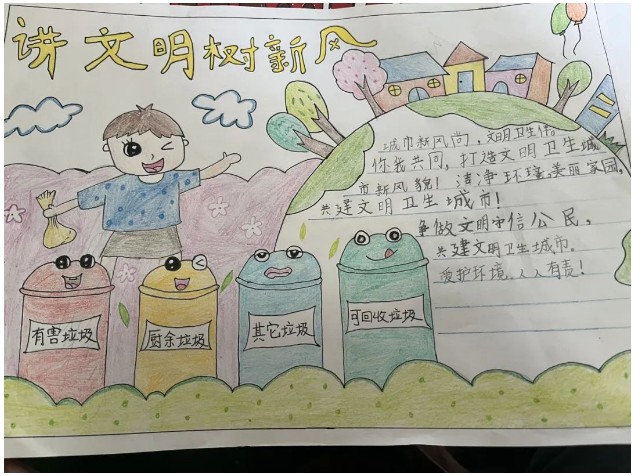 讲文明树新风
城市新风尚，文明卫生佳。
你我共同，打造文明卫生城
市新风貌！洁净环境，美丽家园，
共建文明卫生城市！
争做文明守信公民，
共建文明卫生城市．
爱护环境，人人有责！
有害垃圾
厨余垃圾
其它垃圾
可回收垃圾